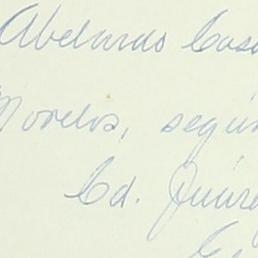 Abelardo Casa
Morelos, según
Cd. Juáre